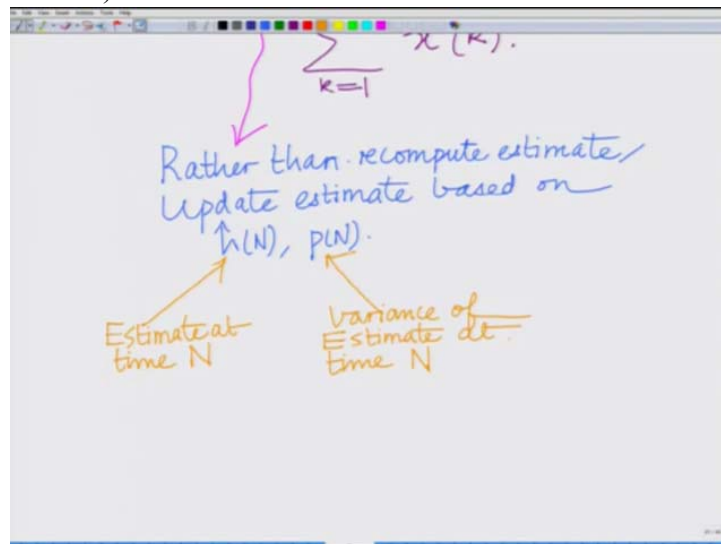 ∑ x(k).
k=1
Rather than recompute estimate,
Update estimate based on
ĥ(N), p(N).
Estimate at
time N
Variance of
Estimate at
time N